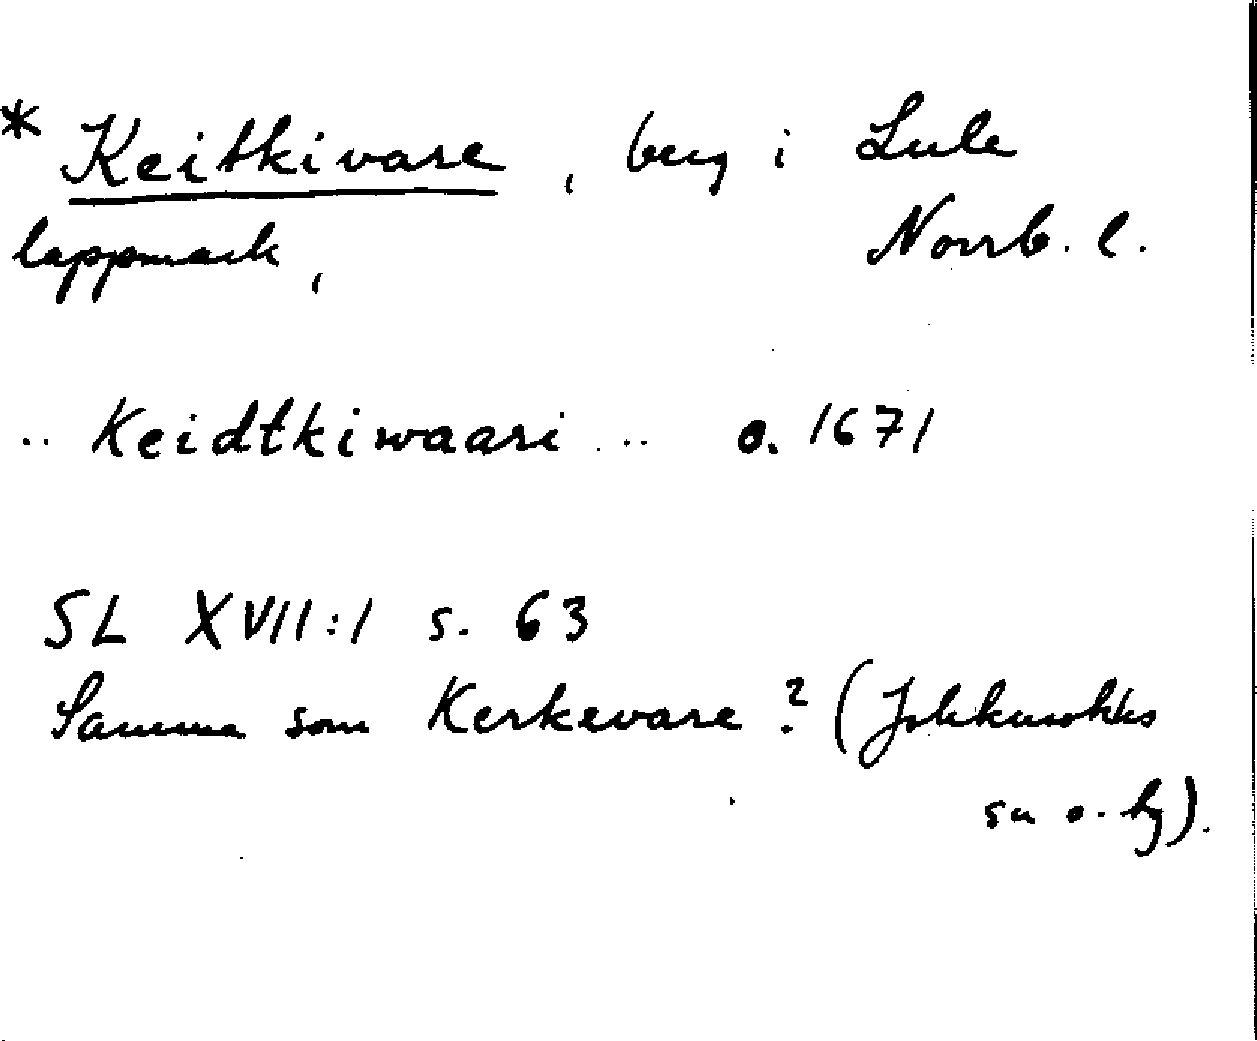 * Keitkivare, berg i Lule
lappmark, Norrb. l.
.. Keidtkiwaari .. o. 1671
SL XVII:1 s. 63
Samma som Kerkevare? (Jokkmokks
sn o. hg).